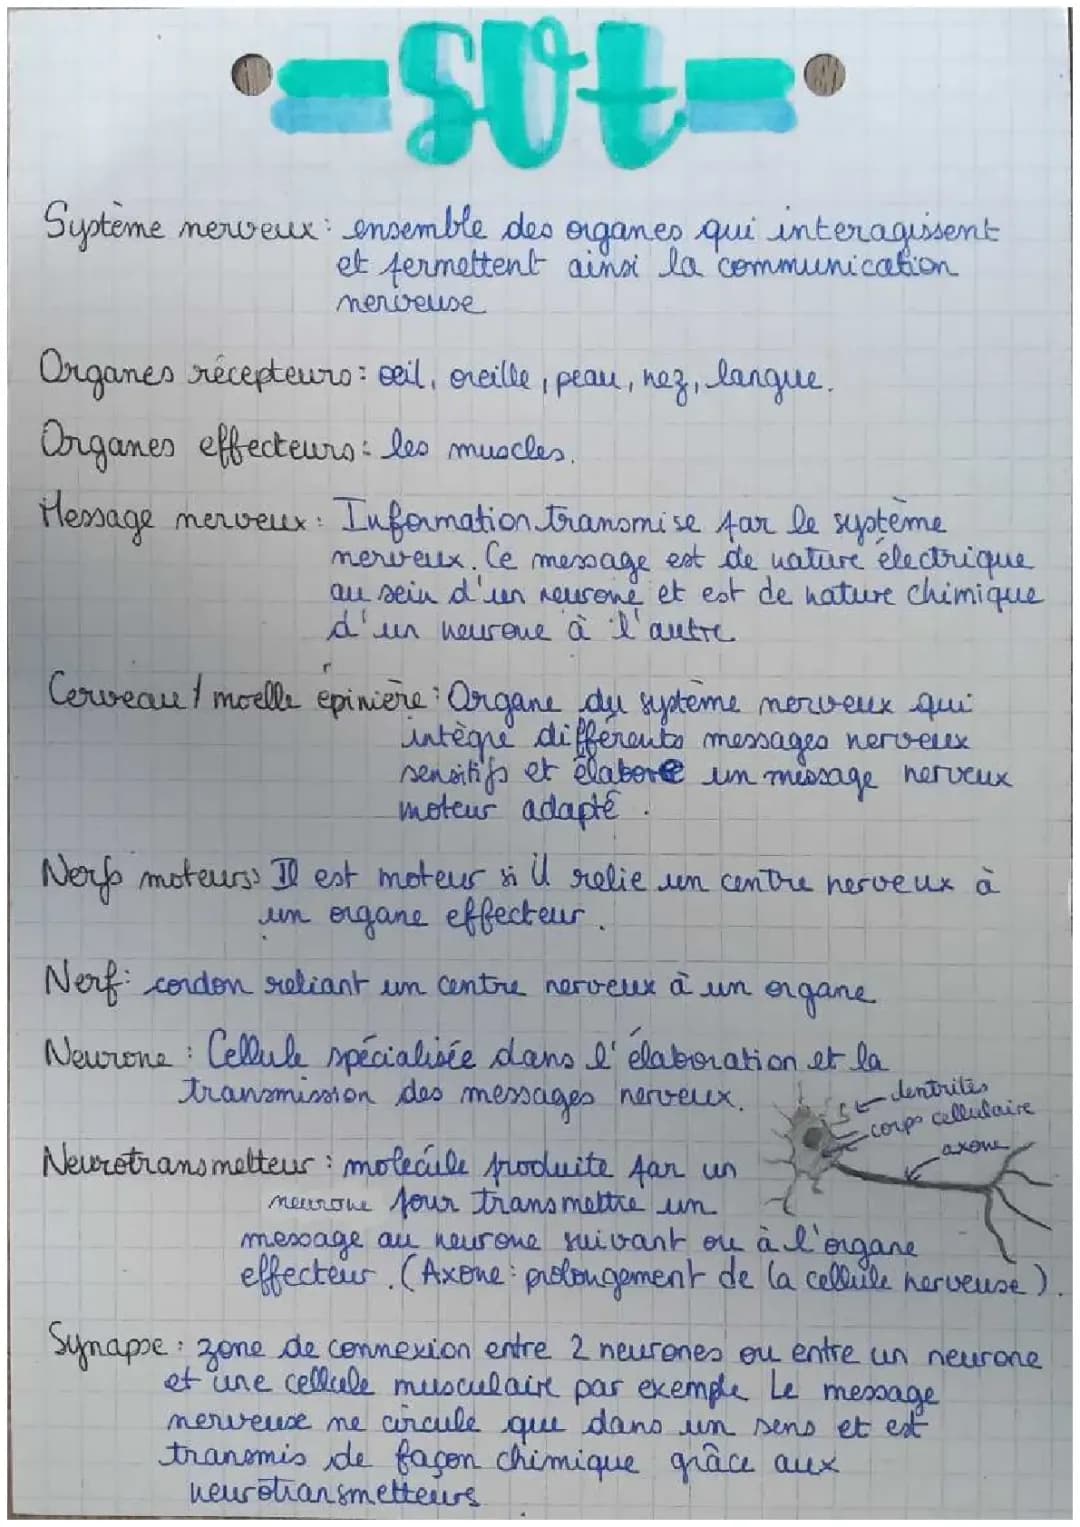 -SVt-
Système nerveux : ensemble des organes qui interagissent
et permettent ainsi la communication
nerveuse
Organes récepteurs : oeil, oreille, peau, nez, langue.
Organes effecteurs : les muscles.
Message nerveux : Information transmise par le système
nerveux. Ce message est de nature électrique
au sein d'un neurone et est de nature chimique
d'un neurone à l'autre
Cerveau / moelle épinière : Organe du système nerveux qui
intègre différents messages nerveux
sensitifs et élabore un message nerveux
moteur adapté.
Nerfs moteurs : Il est moteur si il relie un centre nerveux à
un organe effecteur.
Nerf : cordon reliant un centre nerveux à un organe
Neurone : Cellule spécialisée dans l'élaboration et la
transmission des messages nerveux.
dentrites
corps cellulaire
axone
Neurotransmetteur : molécule produite par un
neurone pour transmettre un
message au neurone suivant ou à l'organe
effecteur. (Axone : prolongement de la cellule nerveuse).
Synapse : zone de connexion entre 2 neurones ou entre un neurone
et une cellule musculaire par exemple Le message
nerveuse ne circule que dans un sens et est
transmis de façon chimique grâce aux
neurotransmetteurs